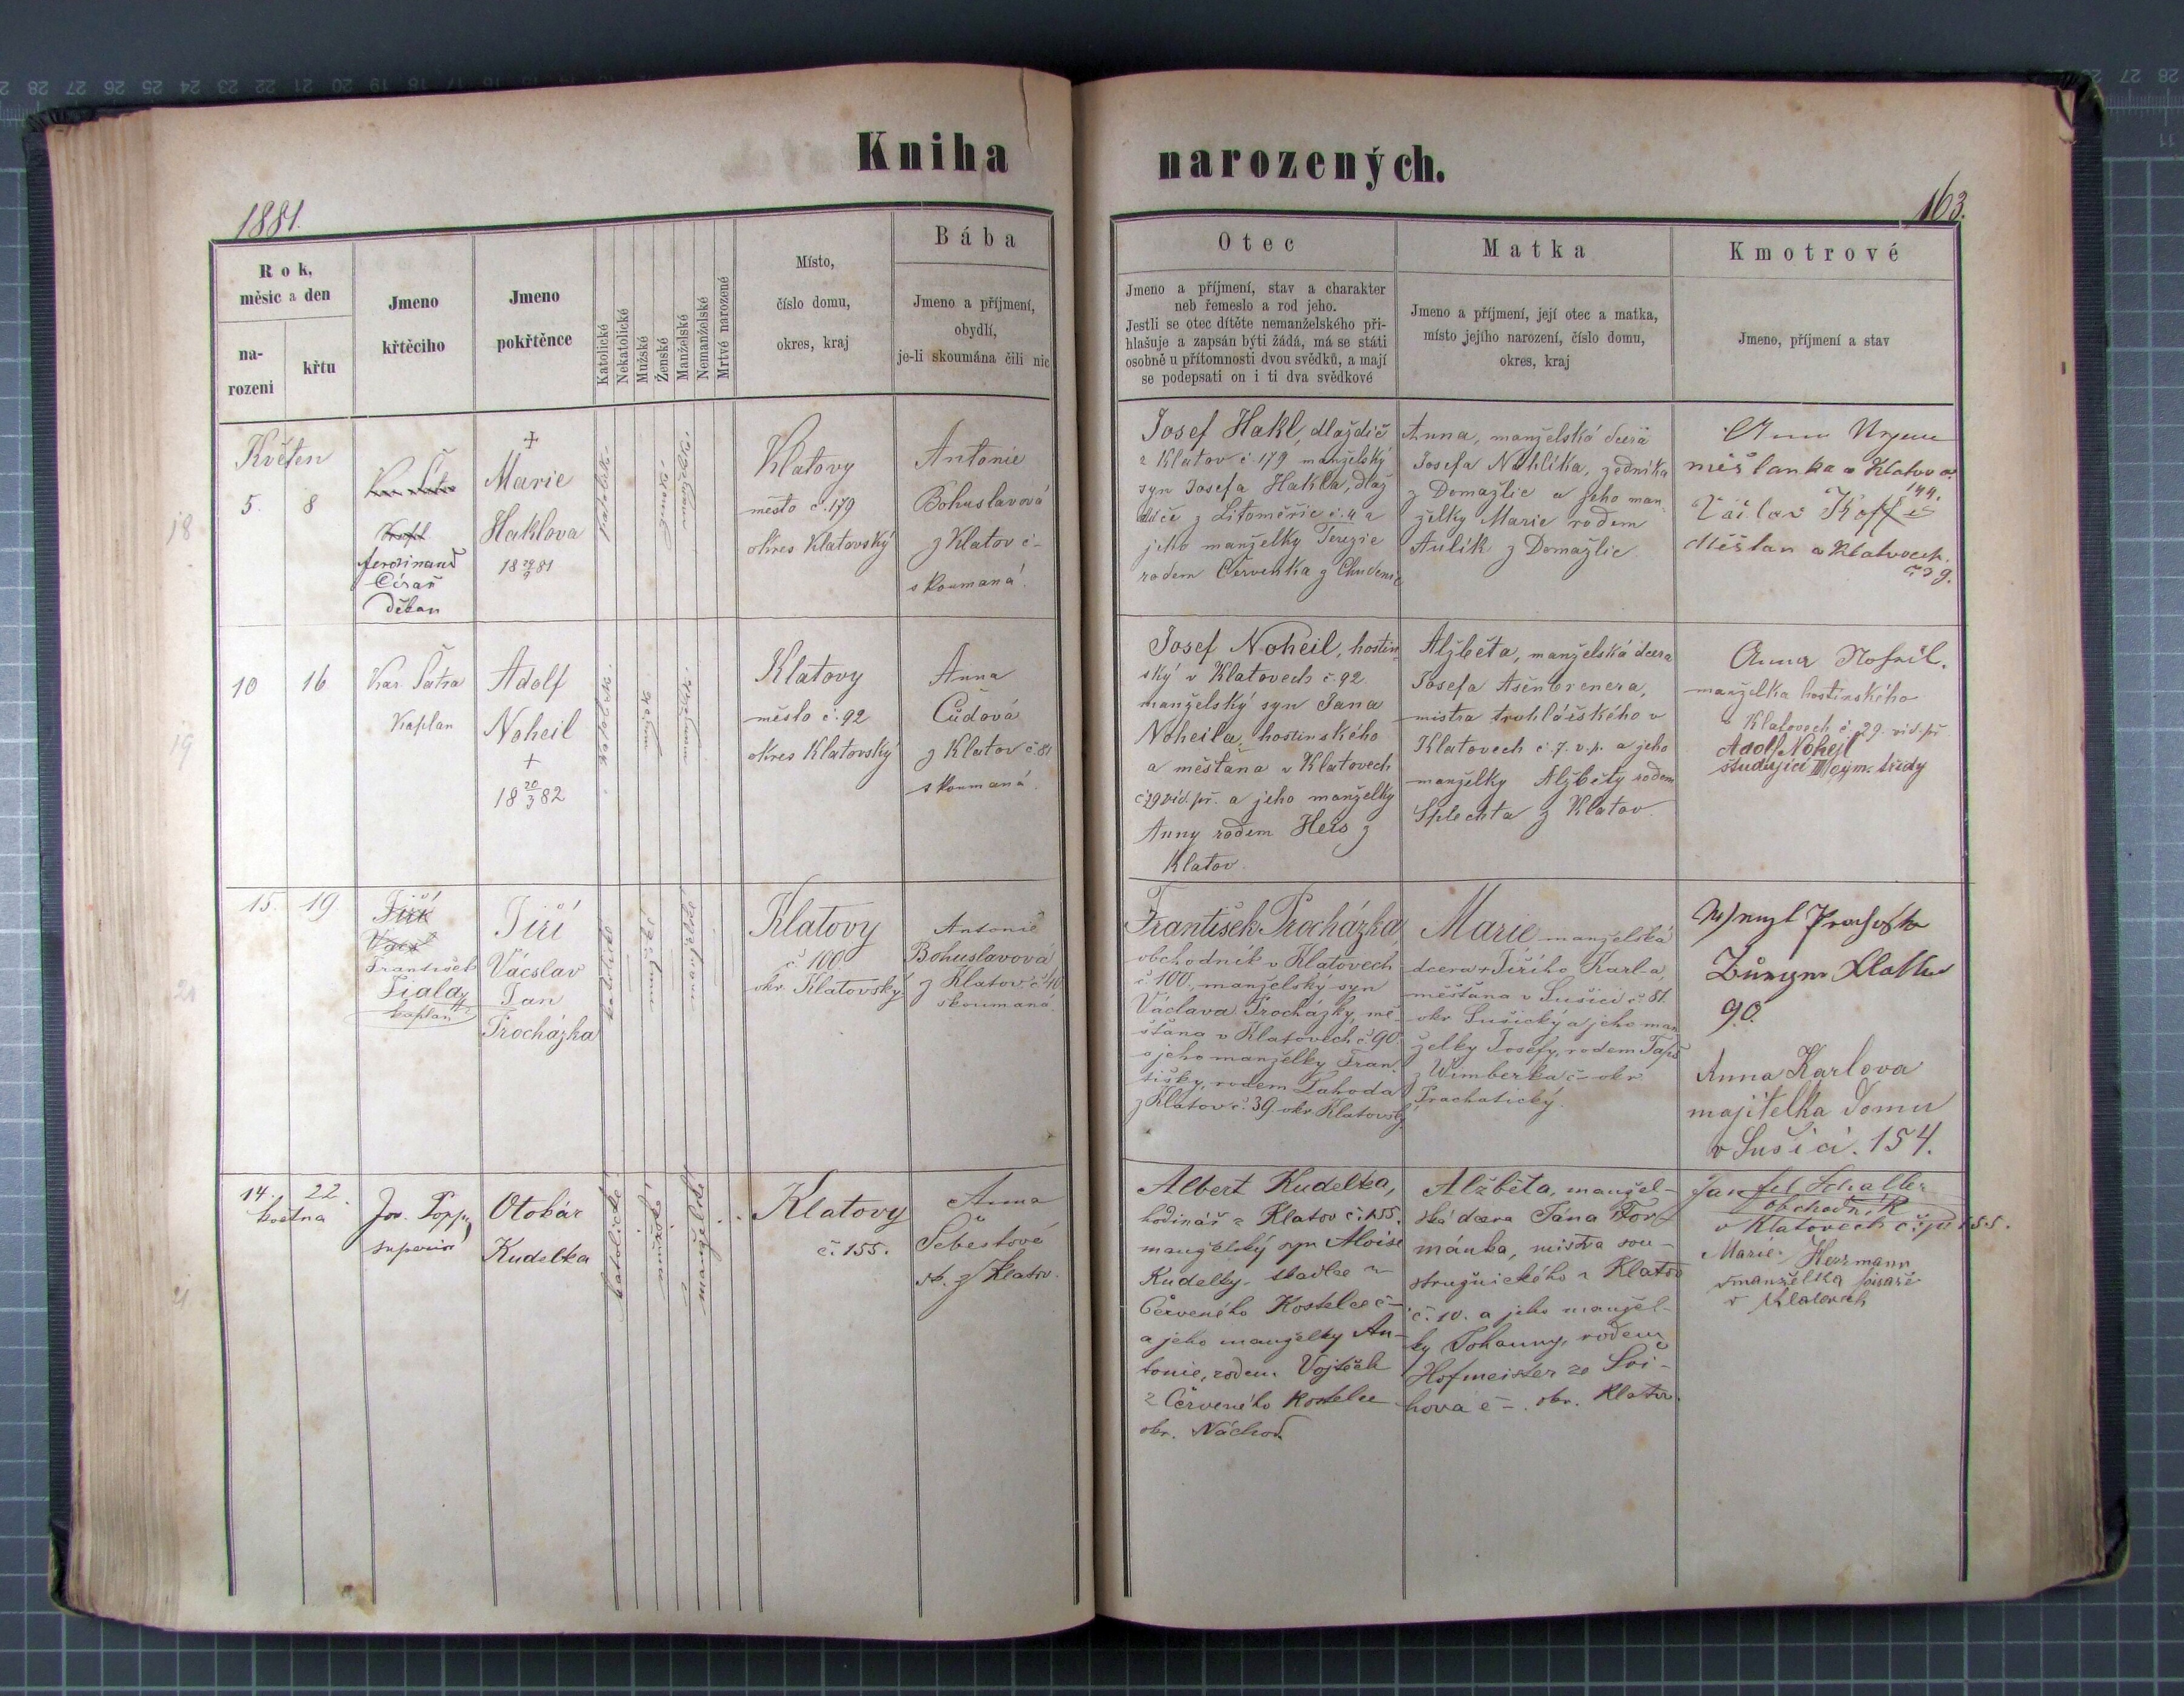 Kniha narozených.
1881.
163.
Rok,
měsic a den
na-
rozeni
křtu
Jmeno
křtěcího
Jmeno
pokřtěnce
Katolické
Nekatolické
Mužské
Ženské
Manželské
Nemanželské
Mrtvé narozené
Místo,
číslo domu,
okres, kraj
Bába
Jmeno a příjmení,
obydlí,
je-li skoumána čili nic
Otec
Jmeno a příjmení, stav a charakter
neb řemeslo a rod jeho.
Jestli se otec dítěte nemanželského při-
hlašuje a zapsán býti žádá, má se státi
osobně u přítomnosti dvou svědků, a mají
se podepsati on i ti dva svědkové
Matka
Jmeno a příjmení, její otec a matka,
místo jejího narození, číslo domu,
okres, kraj
Kmotrové
Jmeno, příjmení a stav
18
Květen
5. 8
ferdinand
Císař
děkan
+
Marie
Haklova
18 29/9 81
Klatovy
město č. 179
okres Klatovský
Antonie
Bohuslavová
z Klatov č –
skoumaná.
Josef Hakl, dlaždič
z Klatov č 179 manželský
syn Josefa Hakla, dlaž
diče z Litoměřic č. 4 a
jeho manželky Terezie
rodem Červenka z Chudenic
Anna, manželská dcera
Josefa Nahlíka, zedníka
z Domažlic a jeho man
želky Marie rodem
Aulík z Domažlic
měšťanka v Klatov
144.
Václav
Měšťan v Klatovech
19
10 16
Kar. Šatra
Kaplan
Adolf
Noheil
+
18 20/3 82
Klatovy
město č. 92
okres Klatovský
Anna
Čudová
z Klatov č 81
skoumaná.
Josef Noheil, hostin
ský v Klatovech č. 92.
manželský syn Jana
Noheila, hostinského
a měšťana v Klatovech
č 29 vid. př. a jeho manželky
Anny rodem Heis z
Klatov.
Alžběta, manželská dcera
Josefa Ašenbrenera,
mistra truhlářského v
Klatovech č. 7. v. p. a jeho
manželky Alžběty rodem
Šplechta z Klatov.
Anna
manželka hostinského
v Klatovech č. 29. vid. př
Adolf Nohejl
studující III gym. třídy
20
15. 19.
František
Fiala
kaplan
Jiří
Vácslav
Jan
Procházka
katolické
mužské
manželské
Klatovy
č. 100.
okr. Klatovský
Antonie
Bohuslavová
z Klatov č 40
skoumaná
František Procházka,
obchodník v Klatovech
č 100, manželský syn
Václava Procházky, mě-
šťana v Klatovech č 90
a jeho manželky Fran
tišky, rodem Lahoda
z Klatov č. 39 okr. Klatovský
Marie manželská
dcera + Jiřího Karla,
měšťana v Sušici č 81.
okr Sušický a jeho man
želky Josefy, rodem
z Wimberka č – okr
Prachatický.
90.
Anna Karlova
majitelka domu
v Sušici. 154.
21
14. 22.
května
Jos. Popp,
superior
Otokár
Kudelka
katolické
mužské
manželské
Klatovy
č. 155.
Anna
Šebestové
zk. z Klatov.
Albert Kudelka,
hodinář z Klatov č. 155.
manželský syn Aloise
Kudelky, tkadlce z
Červeného Kostelce č –
a jeho manželky An-
tonie, rodem Vojtěch
z Červeného Kostelce
okr. Náchod
Alžběta, manžel-
ská dcera Jána For-
mánka, mistra sou-
stružnického z Klatov
č. 10. a jeho manžel-
ky Johanny, rodem
Hofmeister ze Švi-
hova č –. okr. Klatov.
Schaller
obchodník
v Klatovech čp 155.
Marie Herzmann
manželka písaře
v Klatovech